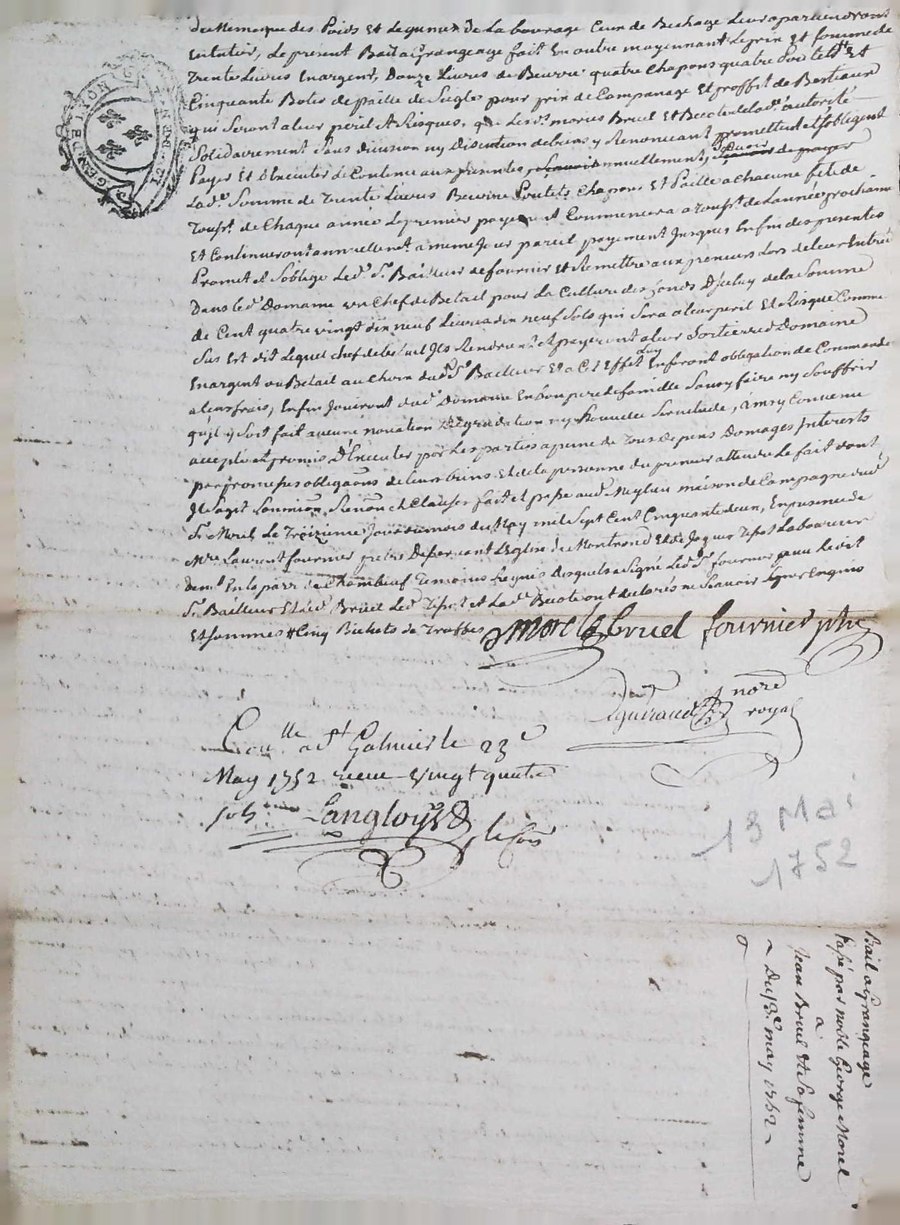 de mesme que des Poids et Legumes de La bourage Ceux de Bechage Leur apartiendront
, Le present Bail a Grangeage fait En outre moyennant Le prix et somme de
Trente Livres En argent, Douze Livres de Beurre quatre Chapons quatre Poulets et
Cinquante Botes de Paille de Siegle pour prix de Companage Et proffit de Bestiaux
qui Seront a leur peril et Risques, que Lesd. maries Bruel Et de lad. autorité
Solidairement Sans division ny Discution de biens y Renoncant promettent et sobligent
Payer et Executer le Contenu aux presentes annuellement de payer
Lad. Somme de Trente Livres Beurre Poulets Chapons Et Paille a Chacune fete de
Touss.t de Chaque année Le premier payement Commencera a Touss.t de L'année prochaine
Et Continueront annuellemt. a meme Jour pareil payement Jusques En fin des presentes
Promet et Soblige Led. Sr. Bailleur de fournir et Remettre aux preneurs Lors de leur Entrée
Dans led. Domaine un Chef de Betail pour La Culture des fonds D'Iceluy de la Somme
de Cent quatre vingt dix neuf Livres dix neuf Sols qui Sera a leur peril Et Risque Comme
Sus Est dit Lequel chef de betail Ils Rendront et payeront a leur Sortie dud. Domaine
En argent ou Betail au Choix dud. Sr. Bailleur Et a C'Effet Enferont obligation de Commande
a leurs frais, Enfin Jouiront dud. Domaine En bon pere de famille Sans y faire ny Souffrir
qu'il y Soit fait aucune novation Degradation ny Nouvelle Servitude, ainsy Convenu
accepté et promis D'Executer par Les parties a peine de Tous depens Domages Interets
par promesses obligaons de leurs biens Et de la personne du preneur attendu le fait dont
Il Sagit Soumions, Renon.on et Clauses fait et passé aud. Meylieu maison de Campagne dud.
Sr. Morel Le Treizieme Jour du mois de May mil Sept Cent Cinquante deux, En presence de
Mre. Laurent fournier pretre Desservant L'Eglise de Montrond Et de Jaques Laboureur
dem.t En la parr. de Chambeuf Temoins Requis Desquels a Signé Led. Sr. fournier avec ledit
Sr. Bailleur Et led. Bruel Led. Et Lad. ont declarés ne Scavoir Signer Enquis
Et Sommés # Cinq Bichets de Truffes
Morel bruel fournier ptre
nore royal
Con.lle a St. Galmier le 23e
May 1752 receu vingt quatre
sols Langloys
13 Mai
1752
Bail a Grangeage
Passé par noble George Morel
a
Jean Bruel et Sa femme
~ Du 13e may 1752 ~
GEN DE LYON